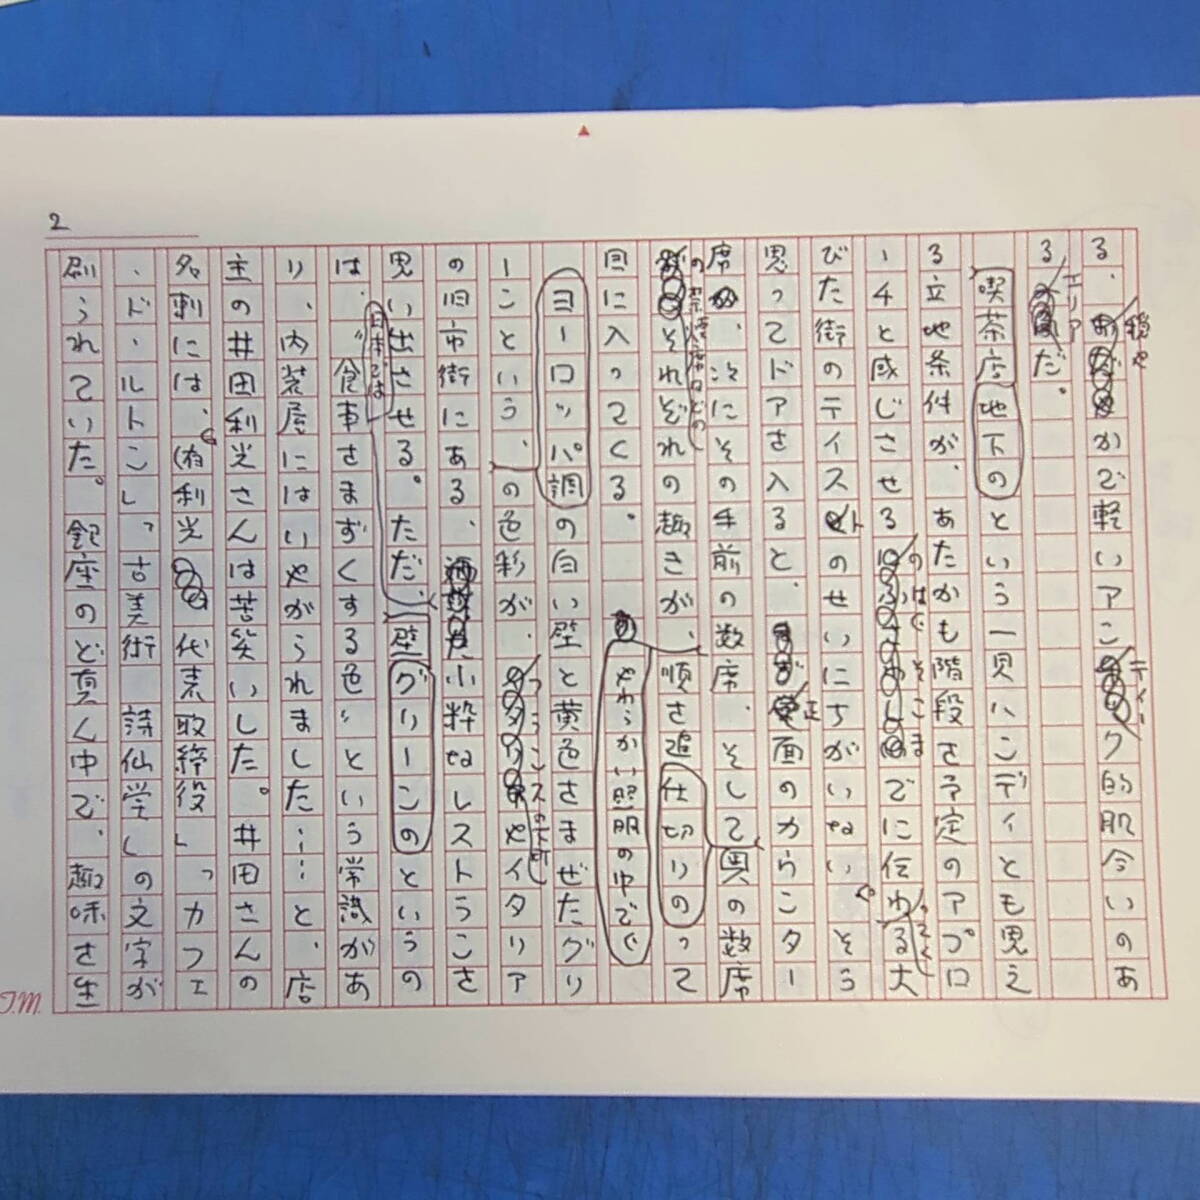 2
る、穏やかで軽いアンティーク的肌合いのあ
るエリアだ。
喫茶店地下のという一見ハンディとも思え
る立地条件が、あたかも階段を予定のアプロ
ーチと感じさせるのはじさそこまでに伝わってくる大
びた街のテイストのせいにちがいない。そう
思ってドアを入ると、正面のカウンター
席、次にその手前の数席、そして奥の数席
の禁煙席などのそれぞれの趣きが、順を追って
仕切りの
やわらかい照明の中で
目に入ってくる。
ヨーロッパ調の白い壁と黄色をまぜたグリ
ーンという、の色彩が、フランスの下町やイタリア
の旧市街にある、小粋なレストランを
思い出させる。ただ、壁グリーンのというの
は、日本では〝食事をまずくする色〟という常識があ
り、内装屋にはいやがられました……と、店
主の井田利光さんは苦笑いした。井田さんの
名刺には、(有)利光 代表取締役」「カフェ
、ド、ルトン」「古美術 詩仙学」の文字が
刷られていた。銀座のど真ん中で、趣味を生
T.M.